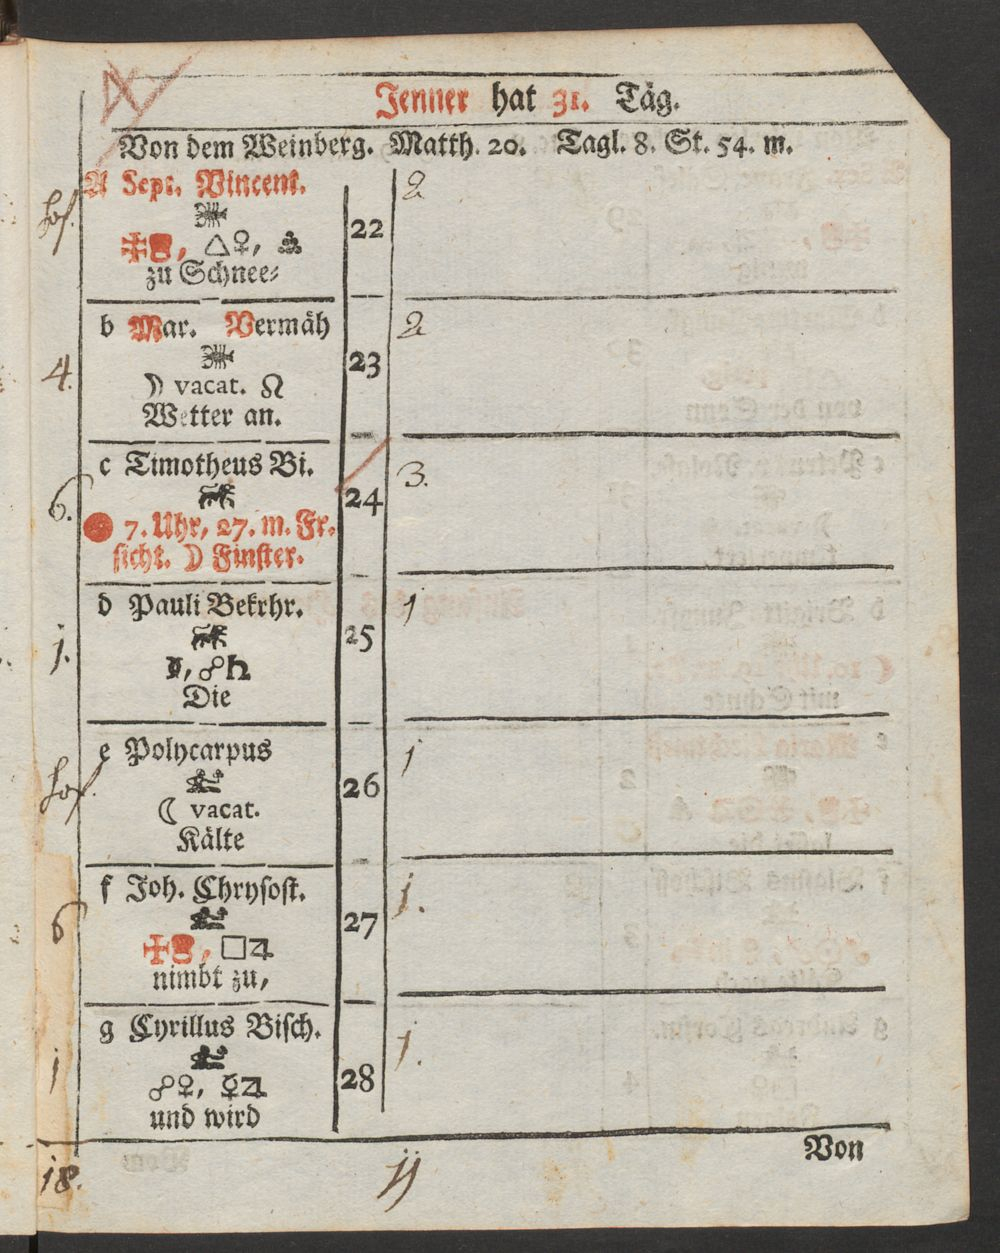 Jenner hat 31. Täg.
Von dem Weinberg. Matth. 20. Tagl. 8. St. 54. m.
A Sept. Vincent. 22 2
△♀,
zu Schnee⸗
b Mar. Vermäh 23 2
4.
☽ vacat. ☊
Wetter an.
c Timotheus Bi. 24 3.
6.
7. Uhr, 27. m. Fr.
sicht. ☽ Finster.
d Pauli Bekehr. 25 1
1.
☍♄
Die
e Polycarpus 26 1
☾ vacat.
Kälte
f Joh. Chrysost. 27 1.
6
□♃
nimbt zu,
g Cyrillus Bisch. 28 1.
1
☍♀, ☿♃
und wird
Von
18. 11